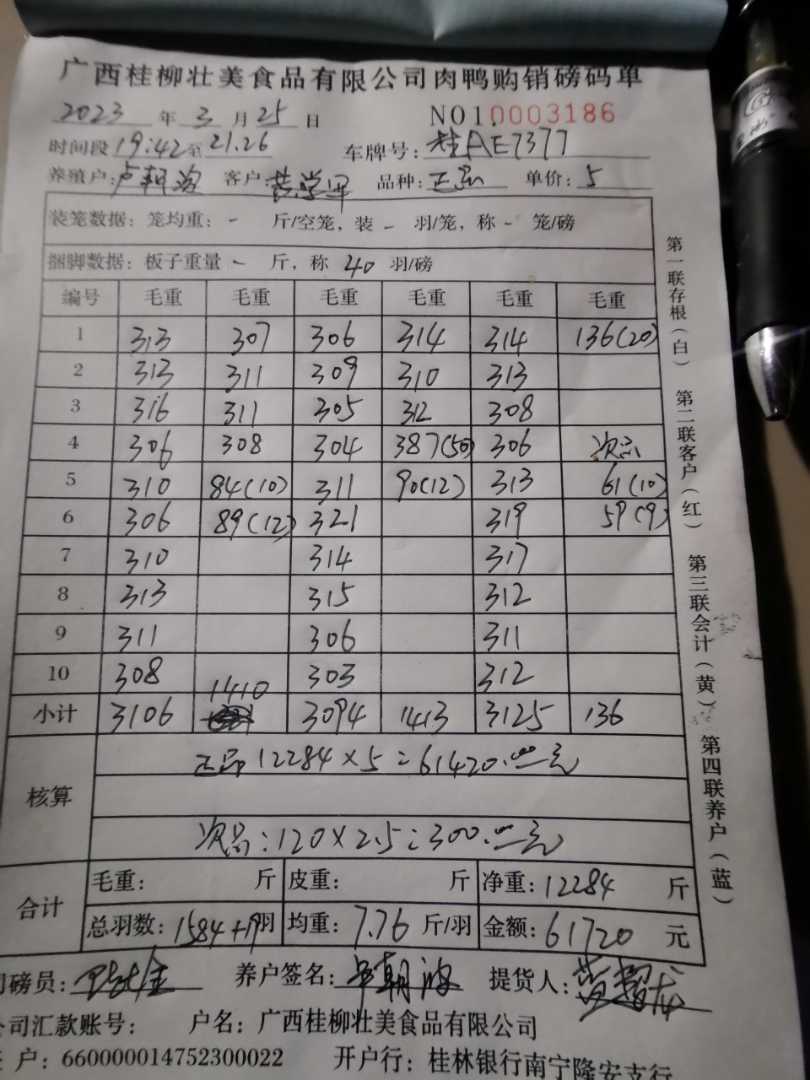 广西桂柳壮美食品有限公司肉鸭购销磅码单
2023 年 3 月 25 日 NO10003186
时间段 19:42 至 21:26 车牌号: 桂AE7377
养殖户: 卢朝 客户: 品种: 正 单价: 5
装笼数据: 笼均重: - 斤/空笼, 装 - 羽/笼, 称 - 笼/磅
捆脚数据: 板子重量 - 斤, 称 40 羽/磅
编号 毛重 毛重 毛重 毛重 毛重 毛重
1 313 307 306 314 314 136(20)
2 313 311 309 310 313
3 316 311 305 312 308
4 306 308 304 387(50) 306 次品
5 310 84(10) 311 90(12) 313 61(10)
6 306 89(12) 321 319 59(9)
7 310 314 317
8 313 315 312
9 311 306 311
10 308 303 312
小计 3106 1410 3094 1413 3125 136
核算 正品 12284×5=61420.00元
次品: 120×2.5=300.00元
合计 毛重: 斤 皮重: 斤 净重: 12284 斤
总羽数: 1584+19羽 均重: 7.76 斤/羽 金额: 61720 元
磅员: 养户签名: 提货人:
公司汇款账号: 户名: 广西桂柳壮美食品有限公司
户: 660000014752300022 开户行: 桂林银行南宁隆安支行
第一联存根(白) 第二联客户(红) 第三联会计(黄) 第四联养户(蓝)